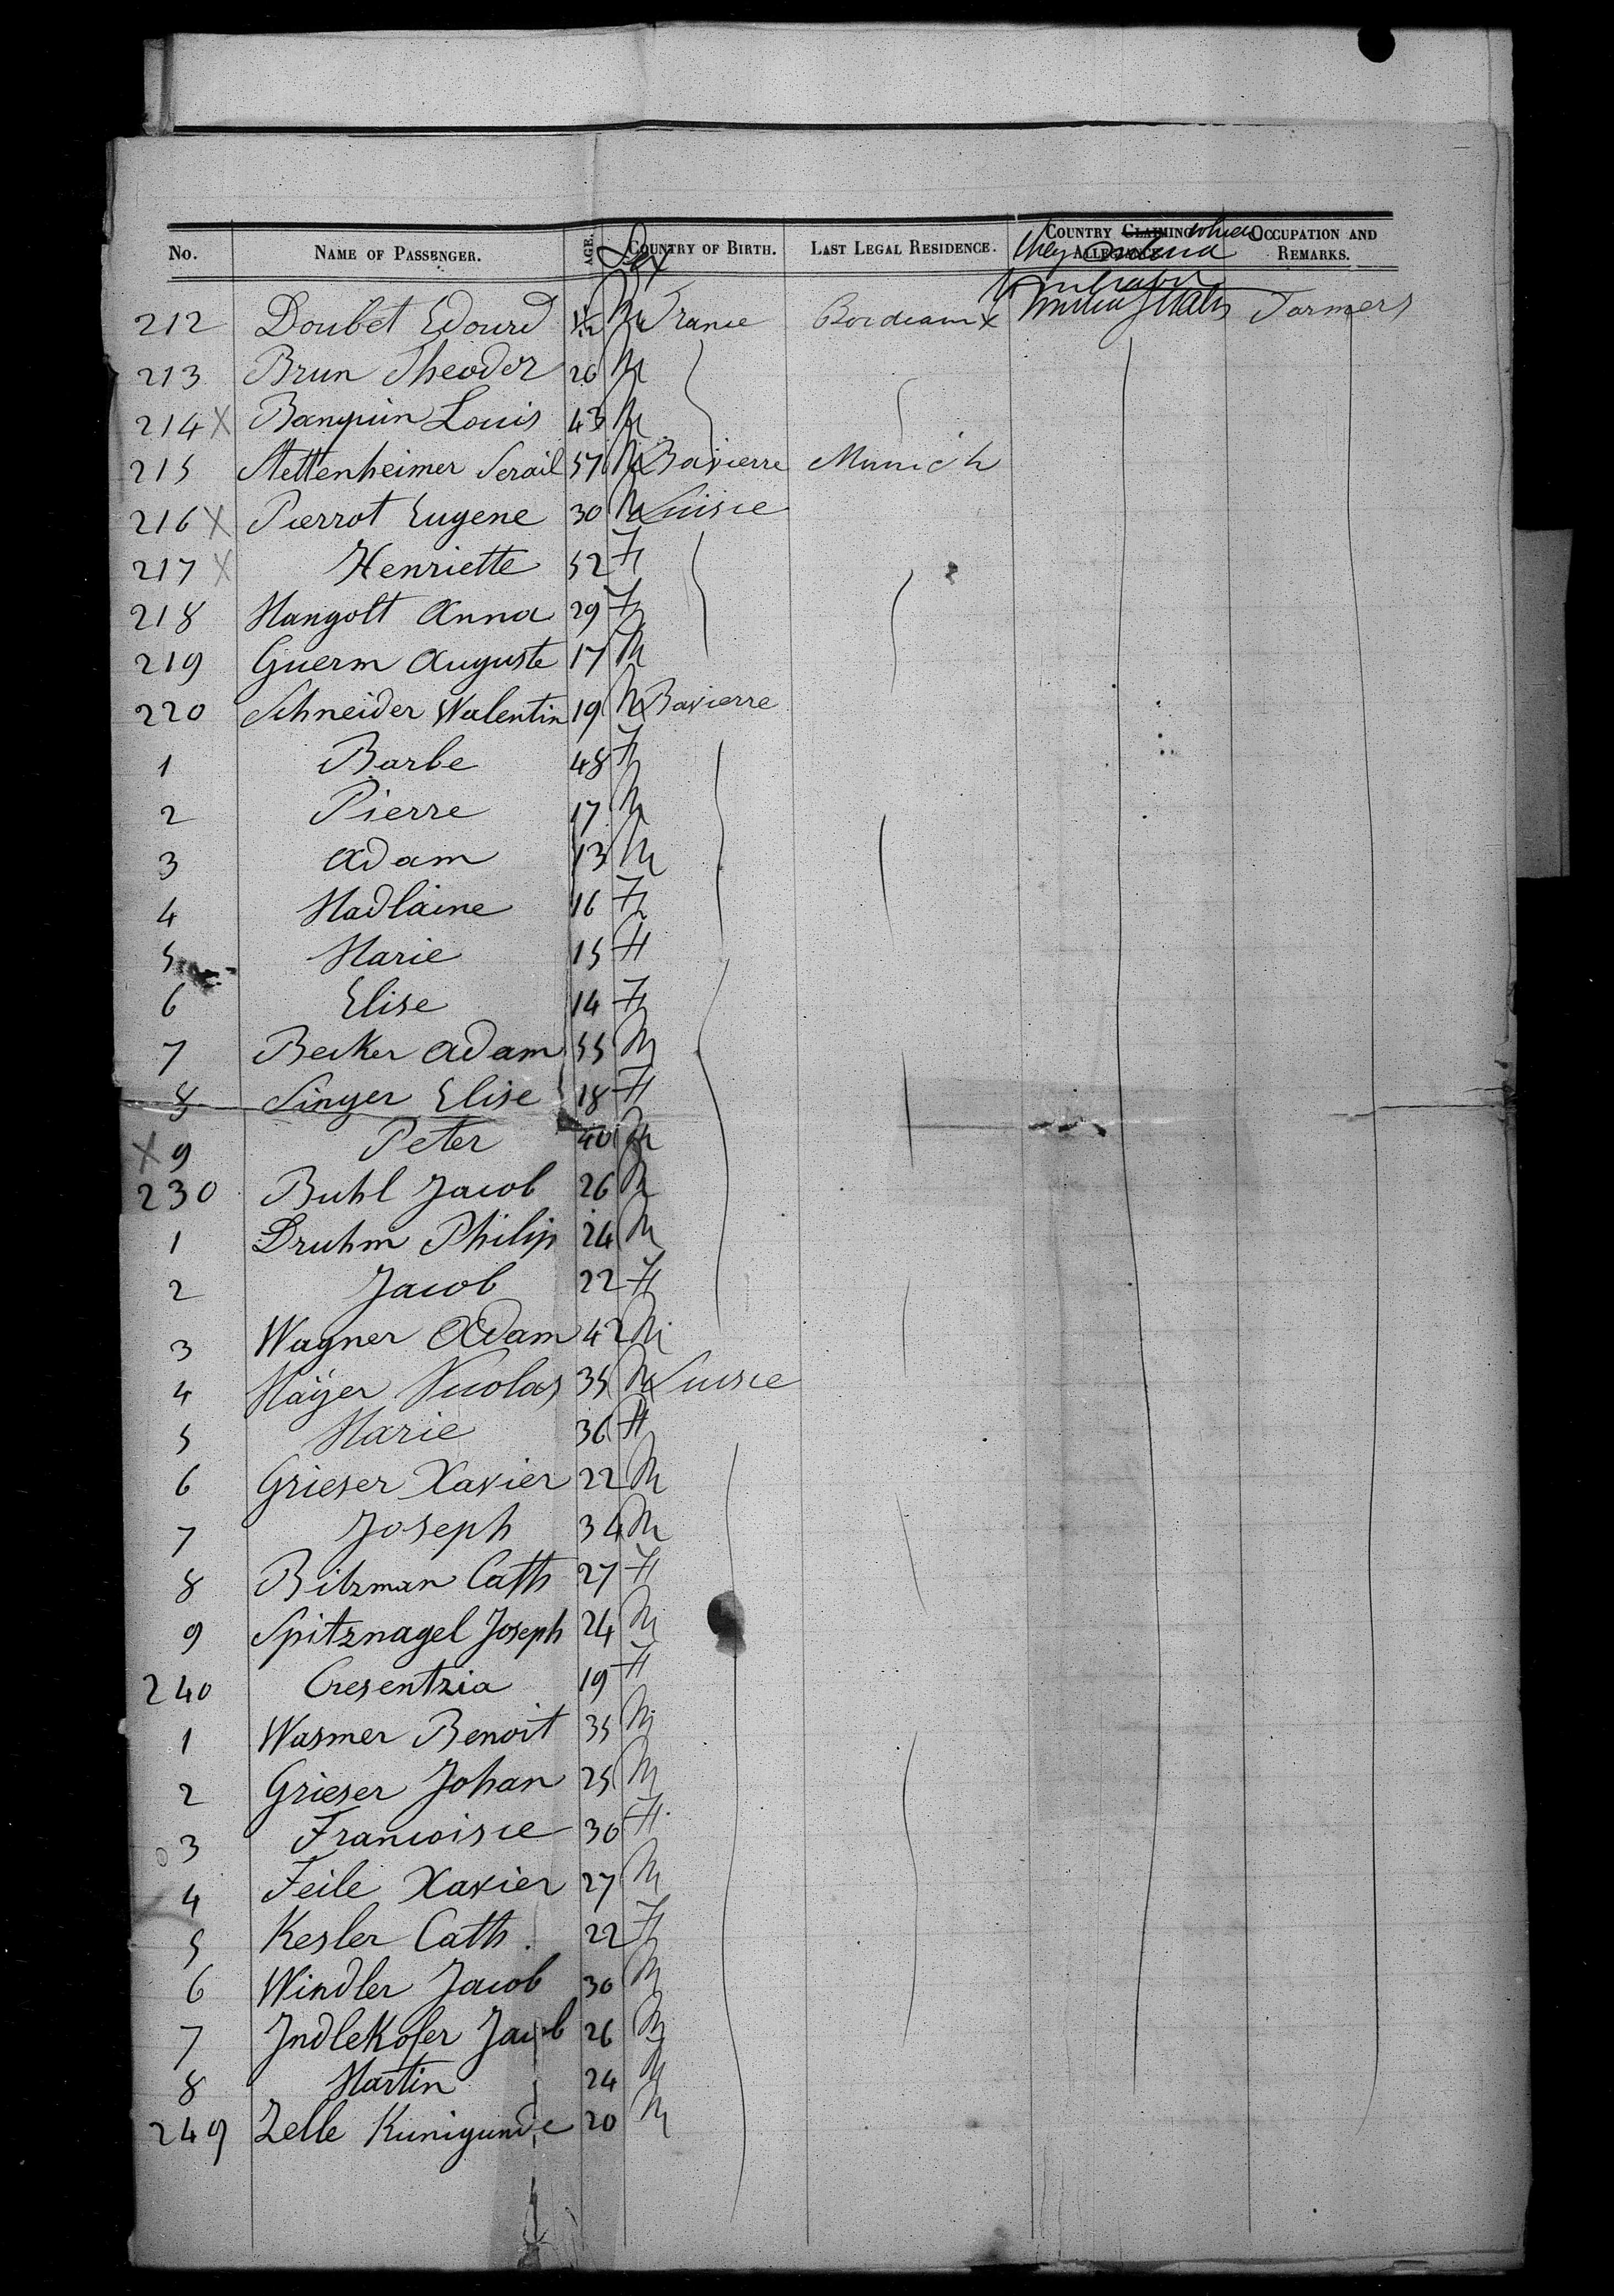 No. NAME OF PASSENGER. AGE. Sex COUNTRY OF BIRTH. LAST LEGAL RESIDENCE. COUNTRY CLAIMING ALLEGIANCE. which they intend to inhabit OCCUPATION AND REMARKS.
212 Doubet Edourd M France Bordeaux United States Farmers
213 Brun Theodor 26 M
214 X Louis 43 M
215 Stettenheimer 57 M Bavierre Munich
216 X Pierrot Eugene 30 M Suisse
217 X Henriette 52 F
218 Mangolt Anna 29 F
219 Guerm Auguste 17 M
220 Schneider Walentin 19 M Bavierre
1 Barbe 48 F
2 Pierre 17 M
3 Adam 13 M
4 Madlaine 16 F
5 Marie 15 F
6 Elise 14 F
7 Becker Adam 55 M
8 Singer Elise 18 F
X 9 Peter 40 M
230 Buhl Jacob 26 M
1 Druhm Philip 24 M
2 Jacob 22 F
3 Wagner Adam 42 M
4 Mäyer Nicolas 35 M Suisse
5 Marie 36 F
6 Grieser Xavier 22 M
7 Joseph 34 M
8 Bitzman Cath 27 F
9 Spitznagel Joseph 24 M
240 Cresentzia 19 F
1 Wasmer Benoit 35 M
2 Grieser Johan 25 M
3 Francoisce 30 F
4 Feile Xavier 27 M
5 Kesler Cath. 22 F
6 Windler Jacob 30 M
7 Indlekofer Jacob 26 M
8 Martin 24 M
249 Zelle Kunigunde 20 M